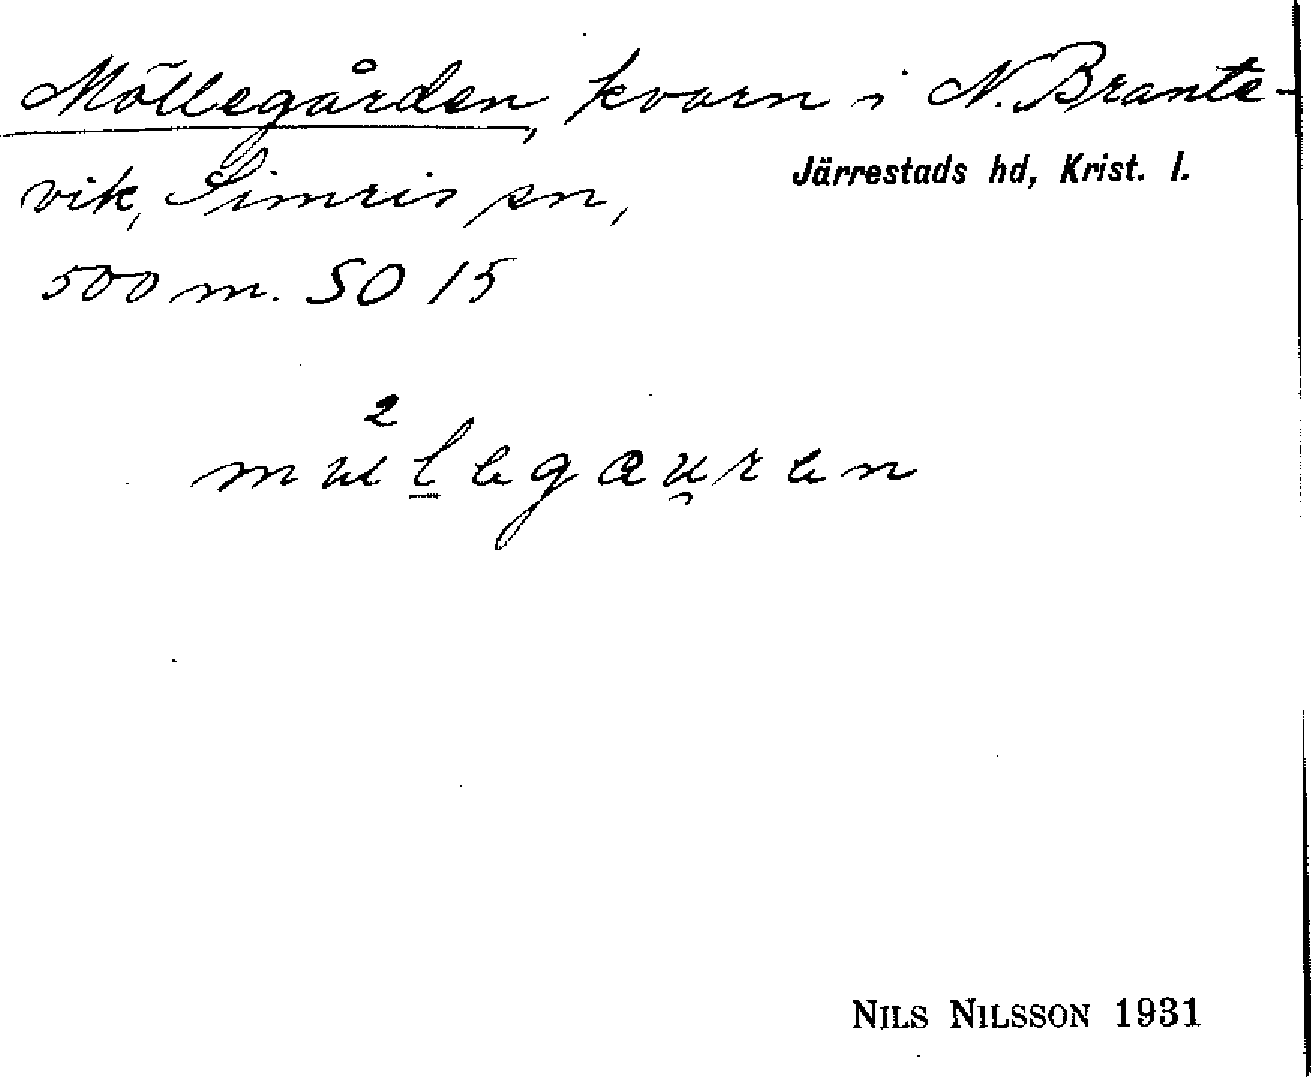 Möllegården, kvarn i N. Brante-
vik, Simris sn,
Järrestads hd, Krist. l.
500 m. SO 15
2
NILS NILSSON 1931